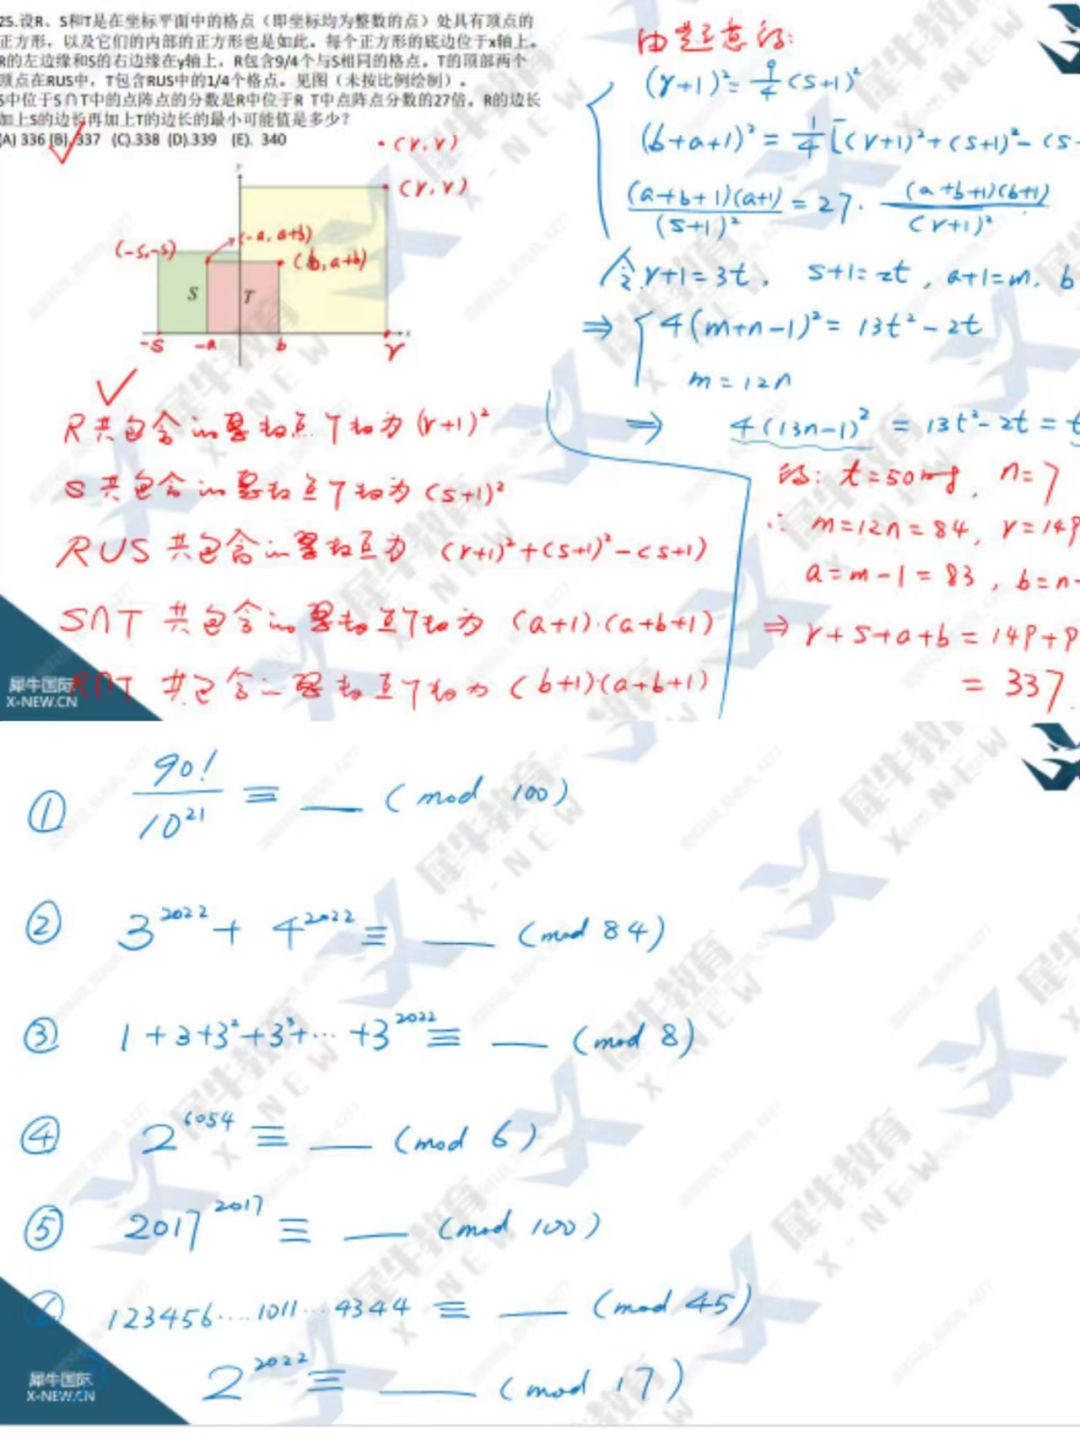 25.设R、S和T是在坐标平面中的格点（即坐标均为整数的点）处具有顶点的
正方形，以及它们的内部的正方形也是如此。每个正方形的底边位于x轴上。
R的左边缘和S的右边缘在y轴上，R包含9/4个与S相同的格点。T的顶部两个
顶点在RUS中，T包含RUS中的1/4个格点。见图（未按比例绘制）。
S中位于S∩T中的点阵点的分数是R中位于R T中点阵点分数的27倍。R的边长
加上S的边长再加上T的边长的最小可能值是多少？
(A) 336 (B) 337 (C).338 (D).339 (E). 340
(r, r)
(r, r)
(-s,-s)
(-a, a+b)
(b, a+b)
S T
-s -a b r
x
y
R共包含 (r+1)²
S共包含 (s+1)²
RUS 共包含 (r+1)²+(s+1)²-(s+1)
S∩T 共包含 (a+1)·(a+b+1)
R∩T 共包含 (b+1)(a+b+1)
由题意得:
(r+1)²= 9/4 (s+1)²
(b+a+1)² = 1/4 [(r+1)²+(s+1)²-(s-
(a+b+1)(a+1)/(s+1)² = 27· (a+b+1)(b+1)/(r+1)²
令 r+1=3t, s+1=2t, a+1=m, b
⇒ { 4(m+n-1)² = 13t²-2t
m=12n
⇒ 4(13n-1)² = 13t²-2t = t
得: t=50 , n=7
∴ m=12n=84, r=149
a=m-1=83, b=n-
⇒ r+s+a+b=149+9
= 337.
犀牛国际
X-NEW.CN
① 90!/10²¹ ≡ __ (mod 100)
② 3²⁰²² + 4²⁰²² ≡ __ (mod 84)
③ 1+3+3²+3³+…+3²⁰²² ≡ __ (mod 8)
④ 2⁶⁰⁵⁴ ≡ __ (mod 6)
⑤ 2017²⁰¹⁷ ≡ __ (mod 100)
123456....1011...4344 ≡ __ (mod 45)
2²⁰²² ≡ __ (mod 17)
犀牛国际
X-NEW.CN
犀牛教育
X-NEW